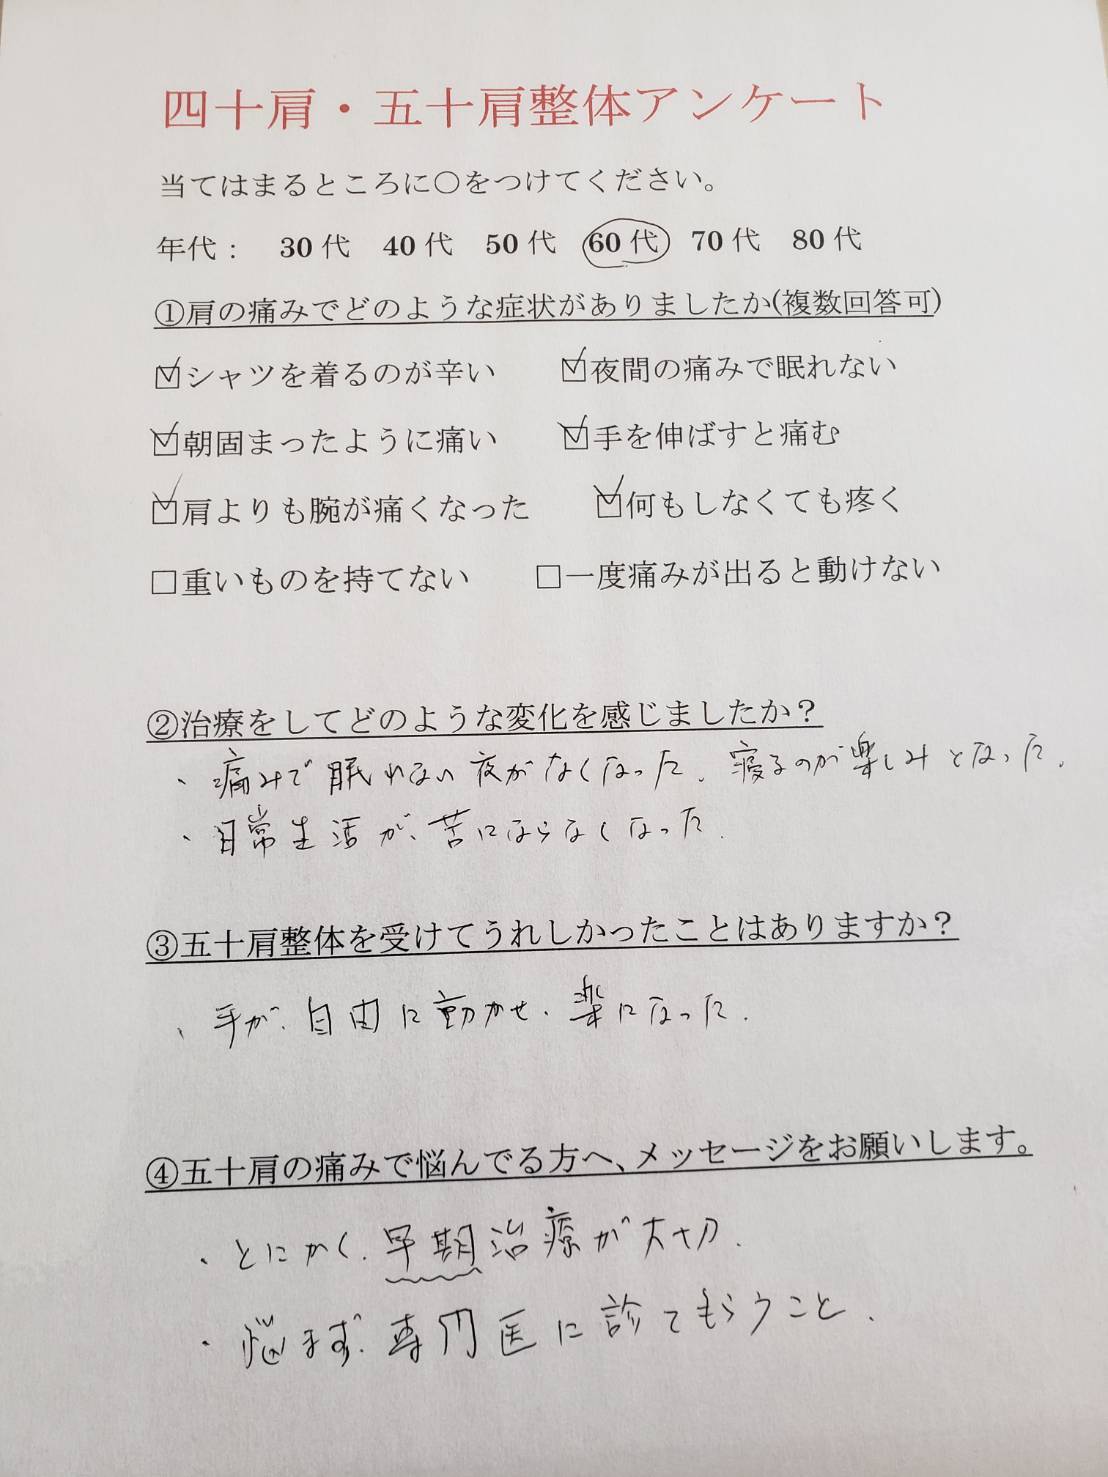 四十肩・五十肩整体アンケート
当てはまるところに〇をつけてください。
年代： 30代 40代 50代 60代 70代 80代
①肩の痛みでどのような症状がありましたか(複数回答可)
☑シャツを着るのが辛い ☑夜間の痛みで眠れない
☑朝固まったように痛い ☑手を伸ばすと痛む
☑肩よりも腕が痛くなった ☑何もしなくても疼く
□重いものを持てない □一度痛みが出ると動けない
②治療をしてどのような変化を感じましたか？
・痛みで眠れない夜がなくなった。寝るのが楽しみとなった。
・日常生活が、苦にならなくなった。
③五十肩整体を受けてうれしかったことはありますか？
・手が、自由に動かせ、楽になった。
④五十肩の痛みで悩んでる方へ、メッセージをお願いします。
・とにかく、早期治療が大切。
・悩まず、専門医に診てもらうこと。